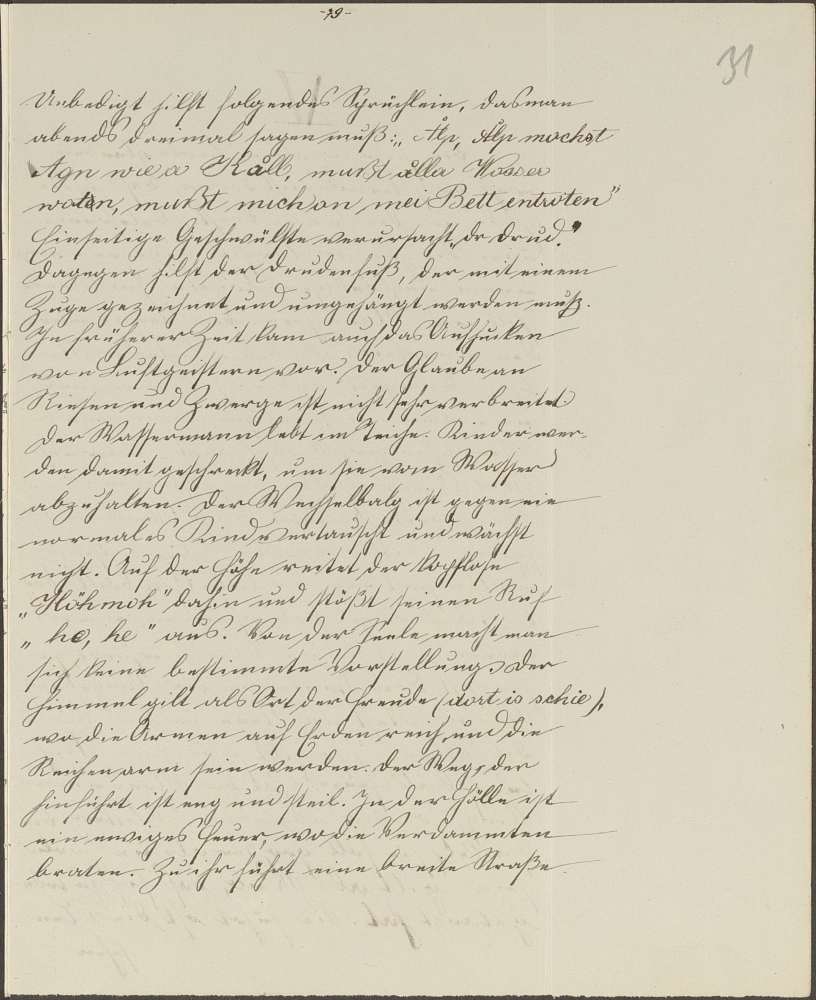 -79-
31
Unbedigt hilft folgendes Sprüchlein, das man
abends dreimal sagen muß: „Ålp, Ålp mochst
Agn wie a Kåll, mußt ålla Wosser
woten, mußt mich on mei Bett entroten"
Einseitige Geschwülste verursacht „dr Drud."
Dagegen hilft der Drudenfuß, der mit einem
Zuge gezeichnet und umgehängt werden muß.
In früherer Zeit kam auch das Aufhucken
von Luftgeistern vor. Der Glaube an
Riesen und Zwerge ist nicht sehr verbreitet.
Der Wassermann lebt im Teiche. Kinder wer-
den damit geschreckt, um sie vom Wasser
abzuhalten. Der Wechselbalg ist gegen ein
normales Kind vertauscht und wächst
nicht. Auf der Höhe reitet der kopflose
„Höhmoh" dahin und stößt seinen Ruf
„he, he" aus. Von der Seele macht man
sich keine bestimmte Vorstellung. Der
Himmel gilt als Ort der Freude (dort is schie),
wo die Armen auf Erden reich und die
Reichen arm sein werden. Der Weg, der
hinführt ist eng und steil. In der Hölle ist
ein ewiges Feuer, wo die Verdammten
braten. Zu ihr führt eine breite Straße.